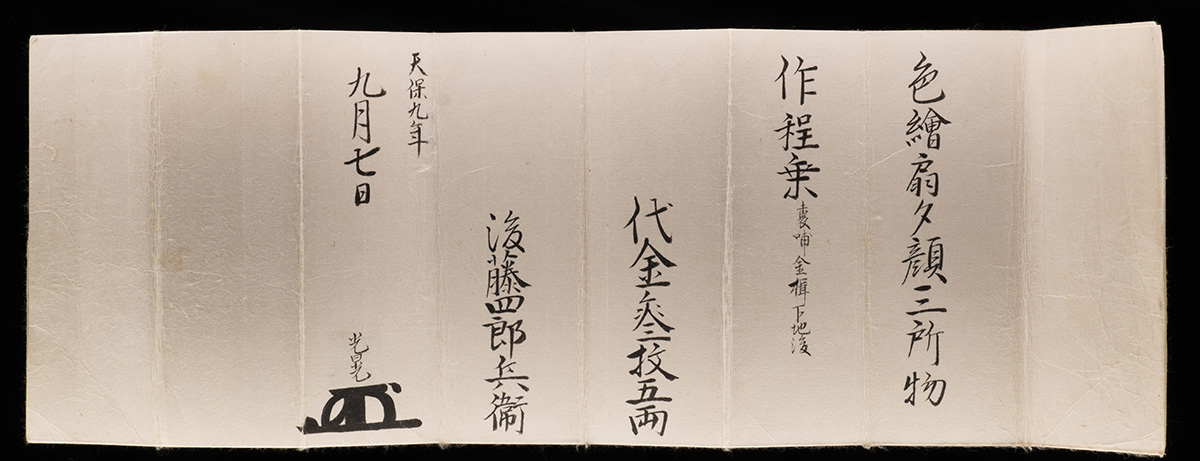 色繪扇夕顔三所物
作程乗
裏哺金楫下地後
代金叁枚五両
後藤四郎兵衛
天保九年
九月七日
光晃